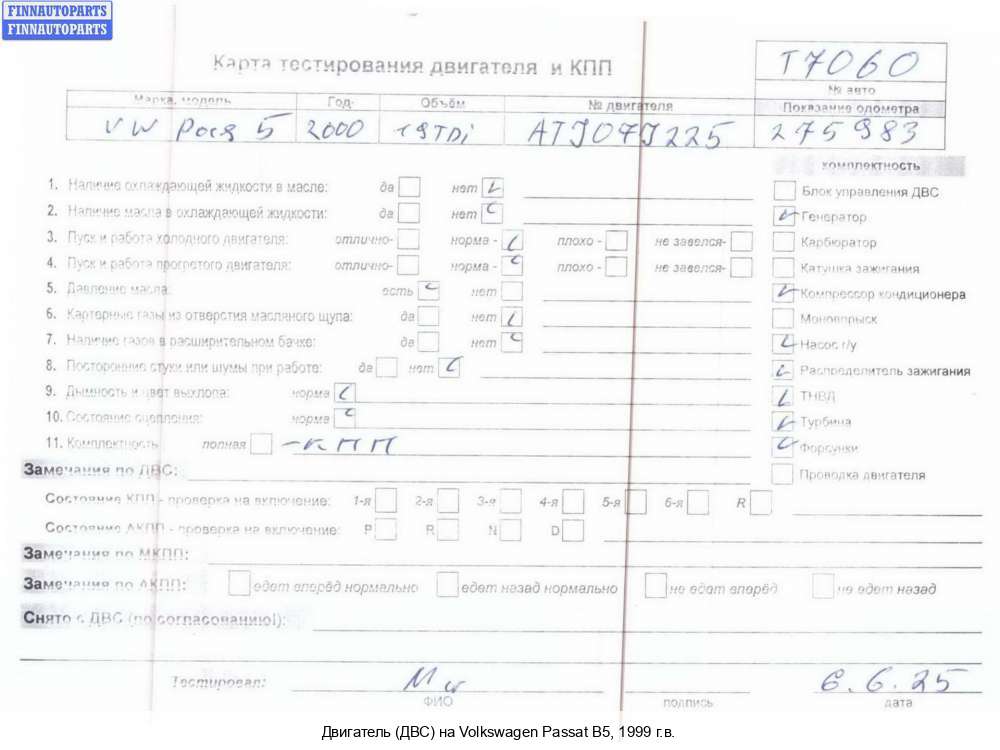 FINNAUTOPARTS
FINNAUTOPARTS
Карта тестирования двигателя и КПП
T7060
№ авто
Марка, модель Год Объём № двигателя Показание одометра
VW 5 2000 1.9TDi ATJ079225 275983
комплектность
1. Наличие охлаждающей жидкости в масле: да нет
Блок управления ДВС
2. Наличие масла в охлаждающей жидкости: да нет
Генератор
3. Пуск и работа холодного двигателя: отлично- норма - плохо - не завелся-
Карбюратор
4. Пуск и работа прогретого двигателя: отлично- норма - плохо - не завелся-
Катушка зажигания
5. Давление масла: есть нет
Компрессор кондиционера
6. Картерные газы из отверстия масляного щупа: да нет
Моновпрыск
7. Наличие газов в расширительном бачке: да нет
Насос г/у
8. Посторонние стуки или шумы при работе: да нет
Распределитель зажигания
9. Дымность и цвет выхлопа: норма
ТНВД
10. Состояние сцепления: норма
Турбина
11. Комплектность полная -КПП
Форсунки
Замечания по ДВС:
Проводка двигателя
Состояние КПП - проверка на включение: 1-я 2-я 3-я 4-я 5-я 6-я R
Состояние АКПП - проверка на включение: P R N D
Замечания по МКПП:
Замечания по АКПП: едет вперёд нормально едет назад нормально не едет вперёд не едет назад
Снято с ДВС (по согласованию!):
Тестировал: 6.6.25
ФИО подпись дата
Двигатель (ДВС) на Volkswagen Passat B5, 1999 г.в.